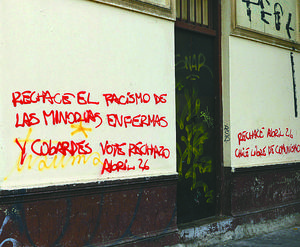 RECHACE EL RACISMO DE
LAS MINORIAS ENFERMAS
Y COBARDES VOTE RECHAZO
ABRIL 26
RECHACE ABRIL 26
CHILE LIBRE DE COMUNISMO